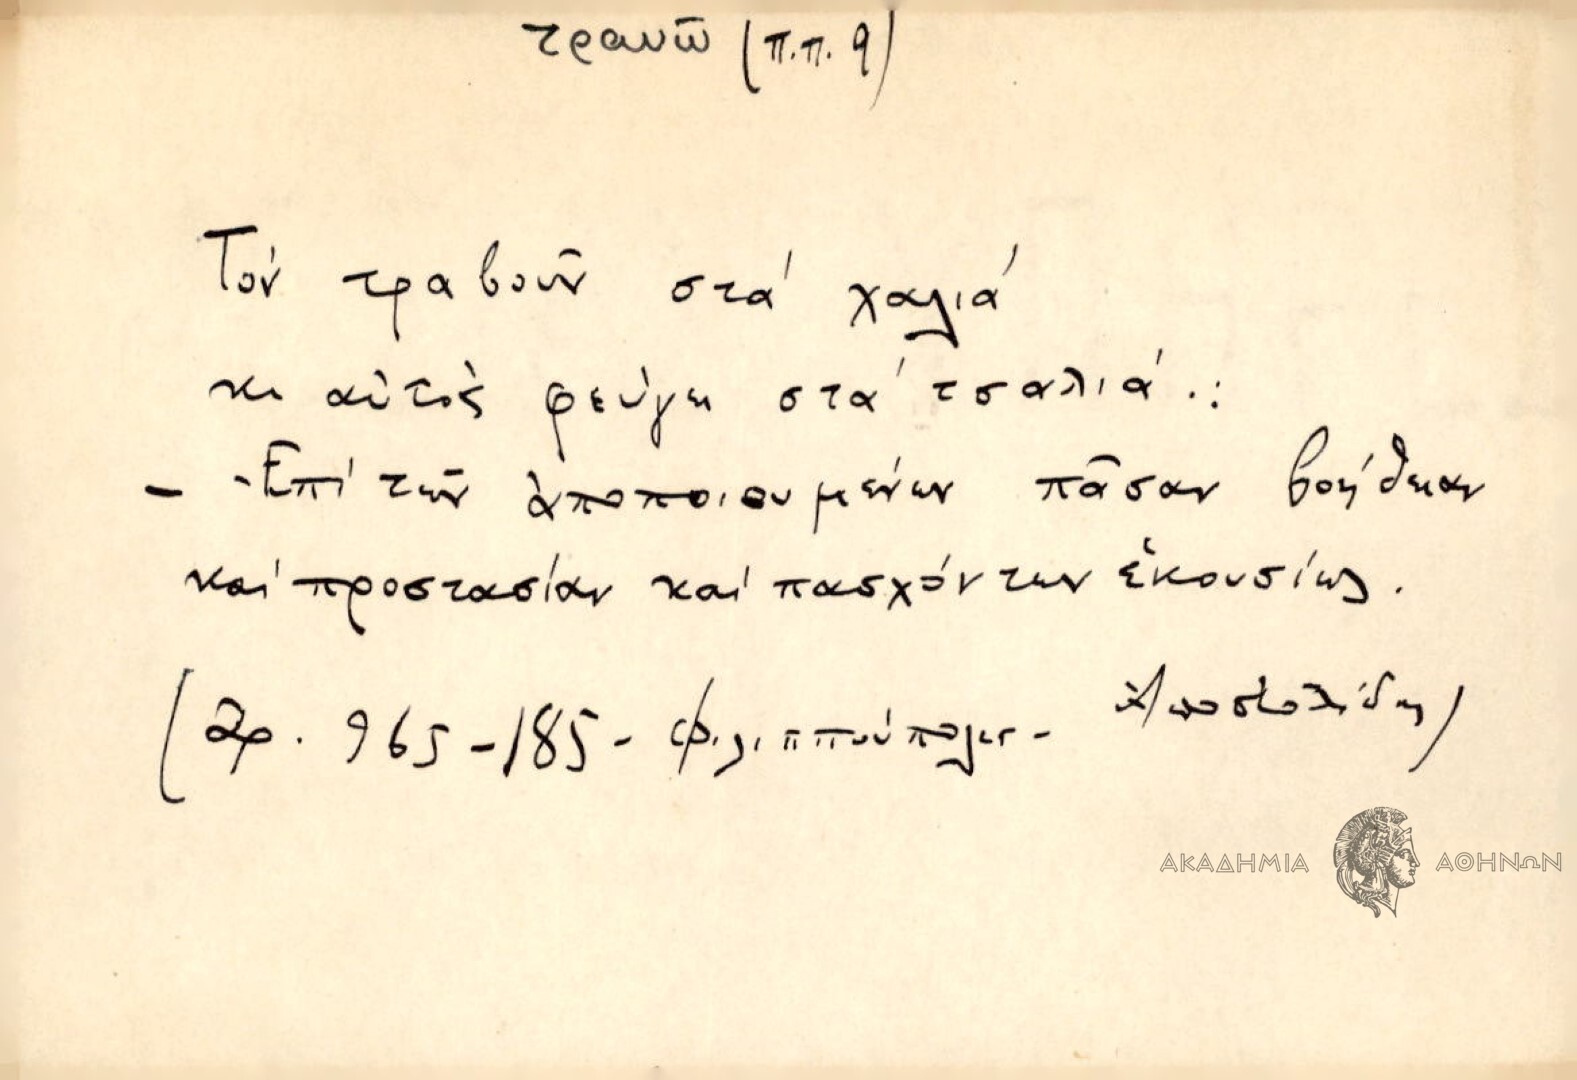 τρανῶ (π.π. 9)
Τόν τραβοῦν στά χαλιά
κι αὐτὸς φεύγει στά τσαλιά.:
- Ἐπί τῶν ἀποποιουμένων πᾶσαν βοήθειαν
καί προστασίαν καί πασχόντων ἑκουσίως.
(Ἀρ. 965-185- Φιλιππούπολις- Ἀποστολίδης)
ΑΚΑΔΗΜΙΑ ΑΘΗΝΩΝ